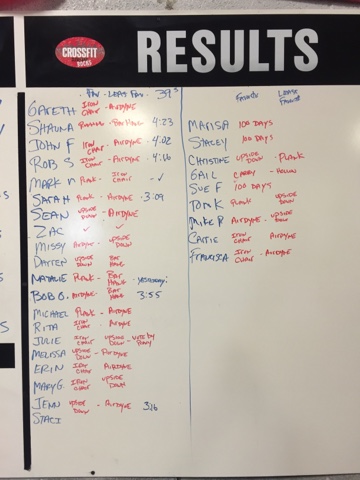 CROSSFIT
ROCKS
RESULTS
FAV - LEAST FAV - 39's
GARETH IRON CHAIR - AIRDYNE
SHAUNA - 4:23
JOHN F IRON CHAIR - AIRDYNE - 4:02
ROB S IRON CHAIR - AIRDYNE - 4:16
MARK M PLANK - IRON CHAIR - ✓
SARAH PLANK - AIRDYNE - 3:09
SEAN UPSIDE DOWN - AIRDYNE
ZAC ✓ ✓
MISSY AIRDYNE - UPSIDE DOWN
DARREN UPSIDE DOWN BAR HANG
NATALIE PLANK - BAR HANG - YESTERDAY!
BOB G. AIRDYNE - BAR HANG 3:55
MICHAEL PLANK - AIRDYNE
RITA IRON CHAIR - AIRDYNE
JULIE IRON CHAIR UPSIDE DOWN - VOTE by
MELISSA UPSIDE DOWN - AIRDYNE
ERIN IRON CHAIR AIRDYNE
MARY G. IRON CHAIR UPSIDE DOWN
JENN UPSIDE DOWN - AIRDYNE 3:16
STACI
FAVORITE LEAST FAVORITE
MARISA 100 DAYS
STACEY 100 DAYS
CHRISTINE UPSIDE DOWN - PLANK
GAIL CARRY - HOLLOW
SUE F 100 DAYS
TOM K PLANK UPSIDE DOWN
MIKE R AIRDYNE - UPSIDE DOWN
CAITIE IRON CHAIR AIRDYNE
IRON CHAIR - AIRDYNE